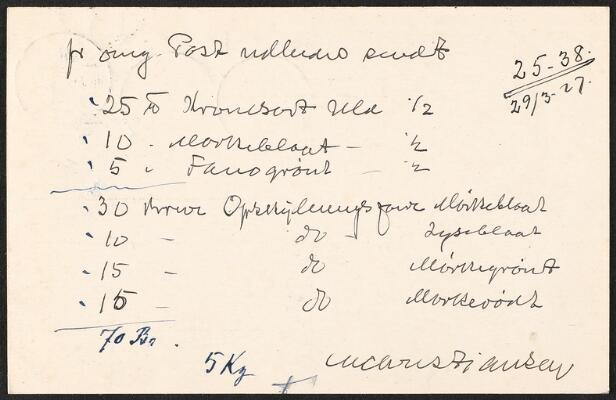 pr omg Post udbedes sendt
25-38.
29/3-27.
25 ℔ Kronesort Uld ½
10 " Mørkeblaat - ½
5 " Fanøgrønt - ½
30 Breve Opskylningsfarve Mørkeblaat
10 - do Lyseblaat
15 - do Mørkegrønt
15 - do Mørkerødt
70 Br.
5 Kg
Christiansen